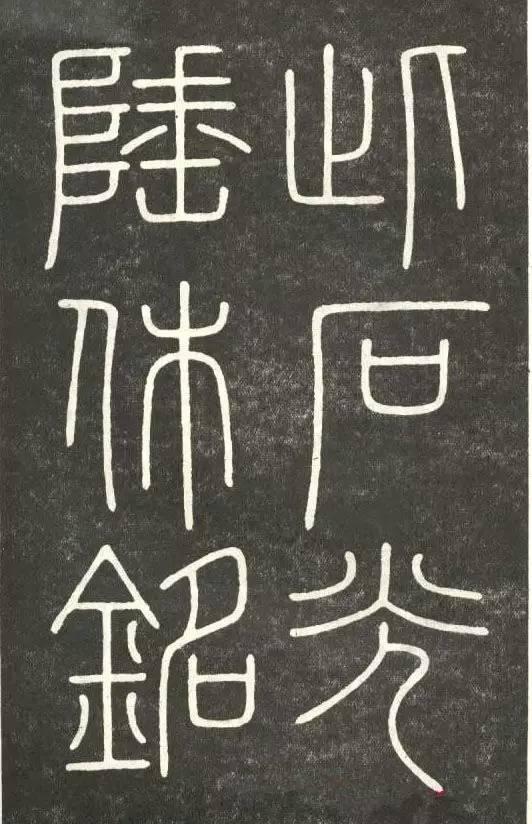 此石光
陸休銘